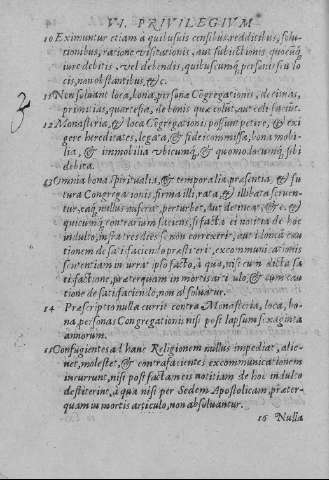 VI. PRIVILEGIVM
10 Eximuntur etiam a quibusuis censibus, redditibus, solu-
tionibus, ratione visitationis, aut subiectionis quocūq
iure debitis, vel debendis, quibuscumq personis seu lo
cis, non obstantibus, &c.
11 Non soluant loca, bona, persona Congregationis, decimas,
primitias, quartesia, de benis quæ colūt, aut coli faciūt.
12 Monasteria, & loca Congregationis possunt petere, & exi
gere hereditates, legata, & fideicommissa, bona mobi-
lia, & immobilia vbicumq, & quomodocumq sibi
debita.
13 Omnia bona spiritualia, & temporalia præsentia, & fu
tura Congregationis, firma illi, rata, & illibata seruen-
tur, eaq nullus auferat, perturbet, aut detineat, &c. &
quicumq contrarium faciens, si facto ei notitia de hoc
indulto, infra tres dies se non correxerit, aut idoneā cau
tionem de satisfaciendo præstiterit, excommunicationis
sententiam incurrat ipso facto, à qua, nisi cum dicta sa
tisfactione, præterquam in mortis articulo, & cum cau
tione de satisfaciendo, non absoluatur.
14 Præscriptio nulla currit contra Monasteria, loca, bo-
na, personas Congregationis nisi post lapsum sexaginta
annorum.
15 Confugientes ad hanc Religionem nullus impediat, alie-
net, molestet, & contrafacientes excommunicationem
incurrunt, nisi post factam eis notitiam de hoc indulto
destiterint, à qua nisi per Sedem Apostolicam, præter-
quam in mortis articulo, non absoluantur.
16 Nulla